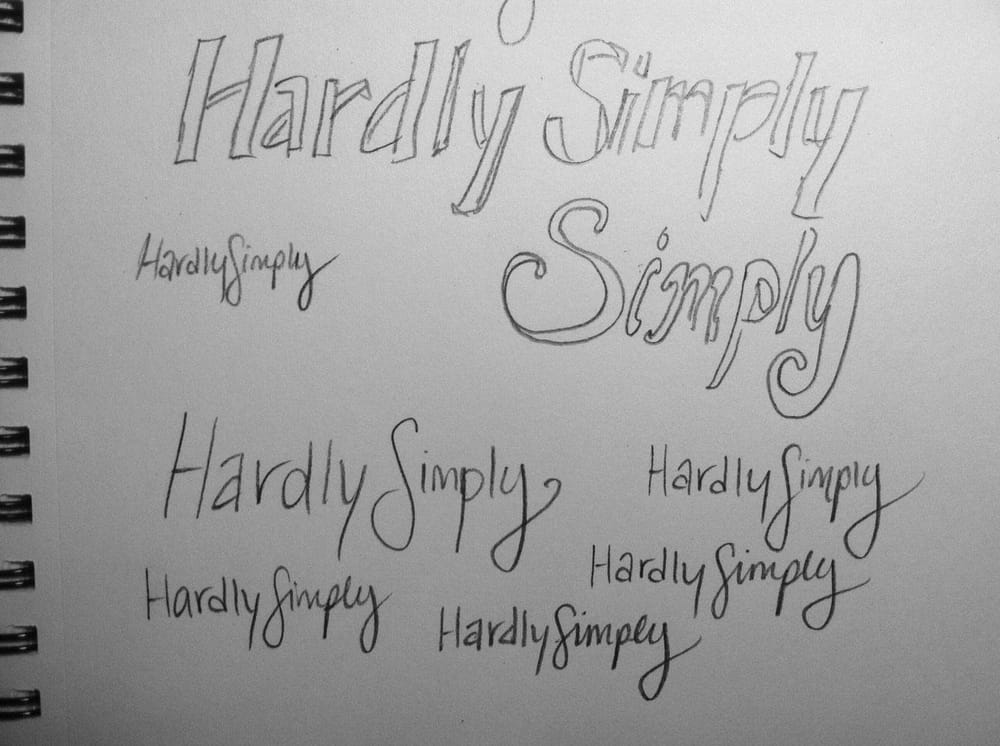 Hardly Simply
HardlySimply
Simply
HardlySimply
HardlySimply
HardlySimply
HardlySimply
HardlySimply